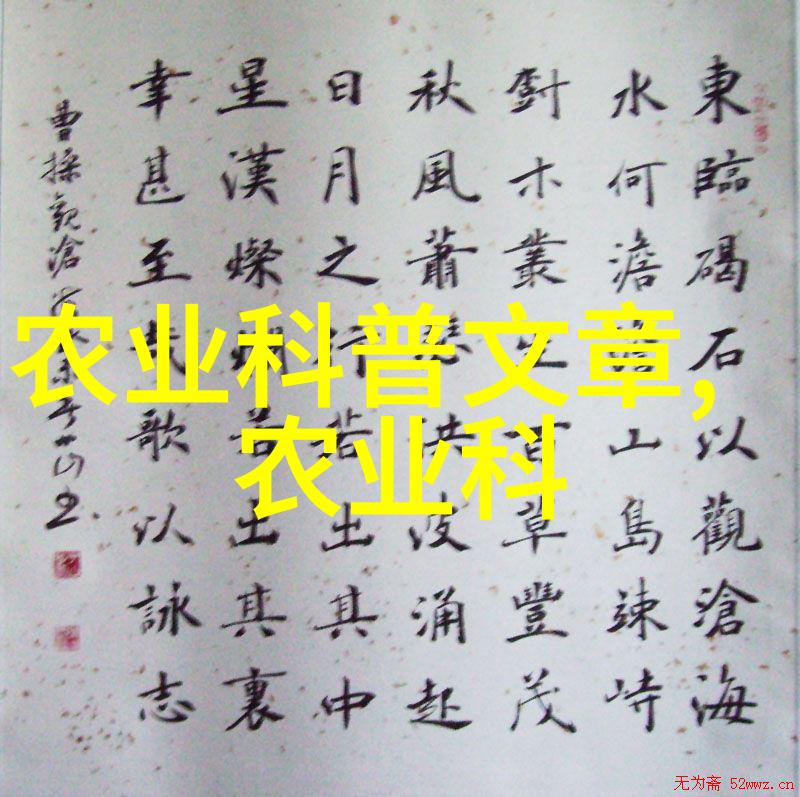 農业科普文章,
农业科
東臨碣石以觀滄海
水何澹澹山島竦峙
木叢生百草豐茂
秋風蕭瑟洪波涌起
日月之行若出其中
星漢燦爛若出其裏
幸甚至哉歌以詠志
曹操觀滄
无为斋 52wwz.cn